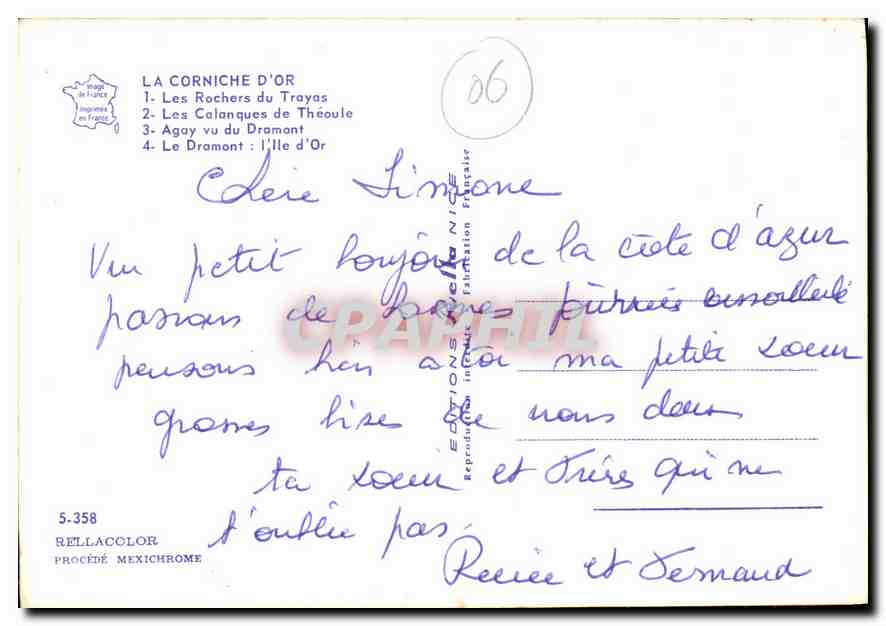 Image
de France
Imprimée
en France
LA CORNICHE D'OR
1- Les Rochers du Trayas
2- Les Calanques de Théoule
3- Agay vu du Dramont
4- Le Dramont : l'Ile d'Or
06
Chère Simone
Un petit bonjour de la côte d'azur
passons de bonnes journées ensoleillé
pensons bien a toi ma petite soeur
grosses bises de nous deux
ta soeur et frère qui ne
t'oublie pas.
Renée et Fernand
EDITIONS rella NICE
Reproduction interdite Fabrication Française
CPAPHIL
5-358
RELLACOLOR
PROCÉDÉ MEXICHROME